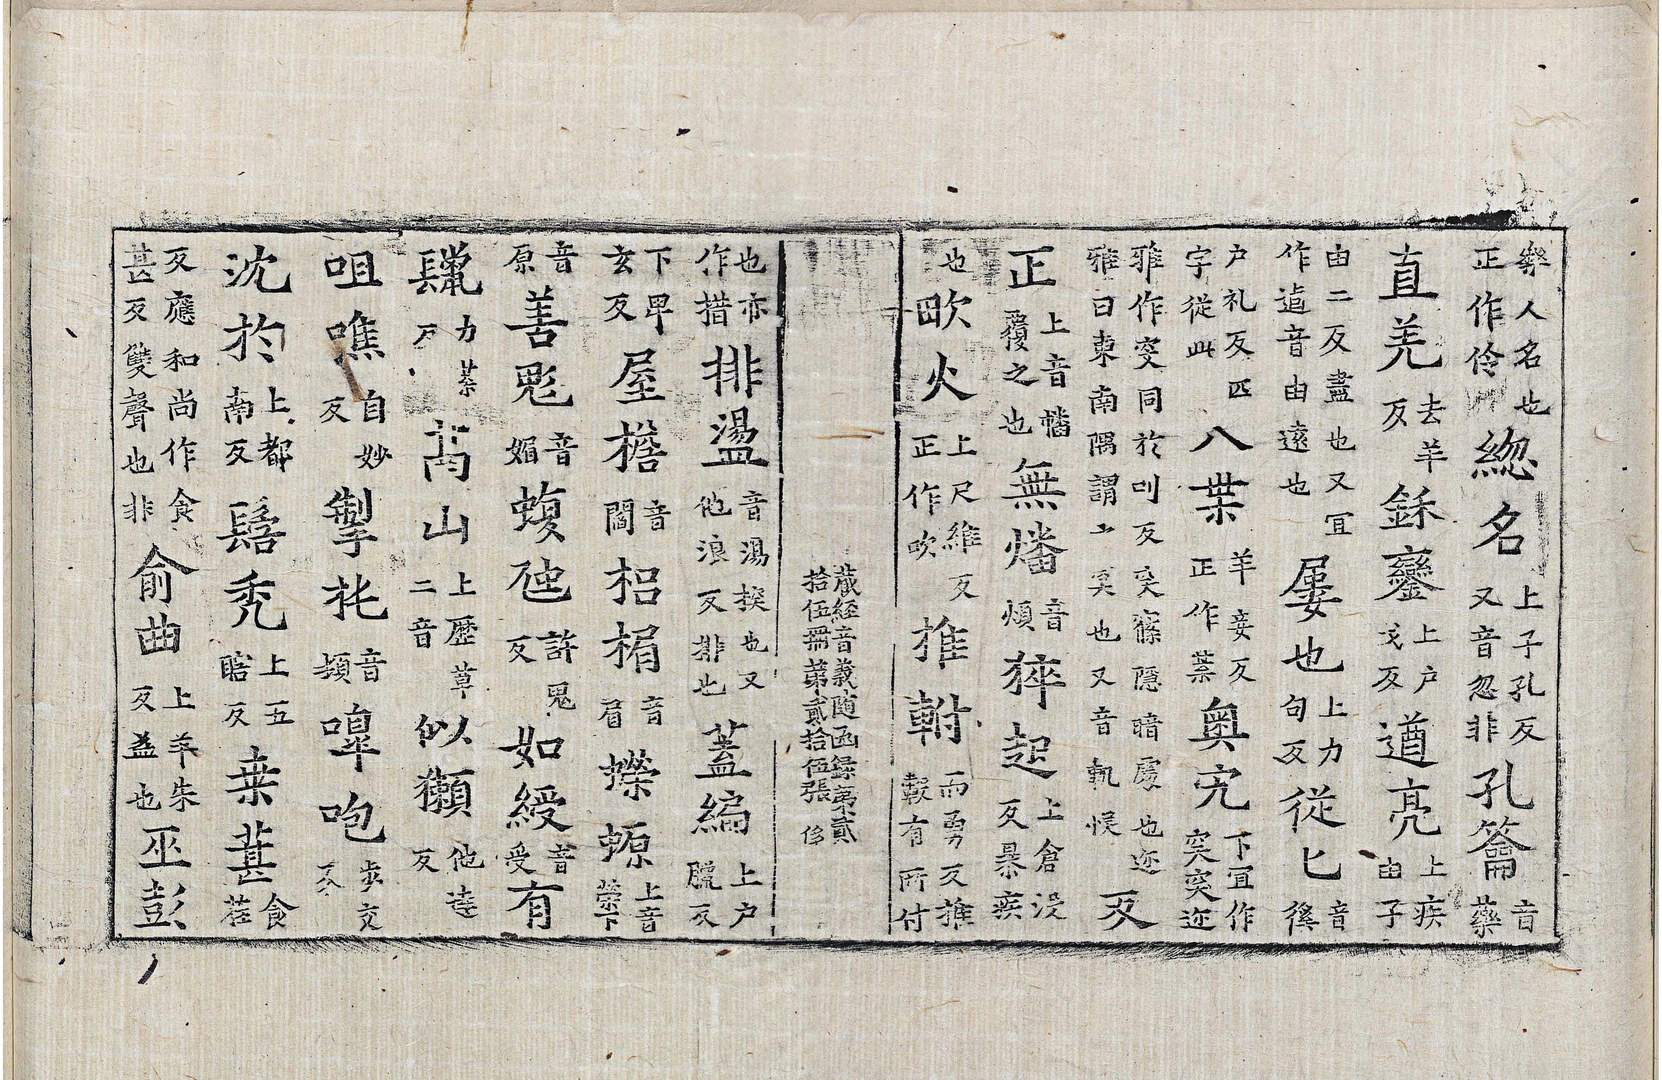 樂人名也正作伶緫名上子孔反又音忽非孔籥音藥
直羌去羊反鉌鑾上戶戈反遒亮上疾由子
由二反盡也又冝作逌音由遠也屢也上力句反從匕音徯
户礼反匹字從此八葉羊妾反正作葉奧穾下冝作
雅作穾同於叫反穾窱隱暗處也迩雅曰東南隅謂之穾也又音軌悮
正覆之也上音幡無燔音煩猝起上倉没反暴疾
也㰦火上尺維反正作吹推軵而勇反推
藏經音義隨函録第貳拾伍冊第貳拾伍張
也亦作措排盪音湯揬也又他浪反排也蓋編上户
下卑玄反屋檐音閻梠楣音眉蠑螈上音榮下
音原善鬽音媚蝮虺許鬼反如綬音受有
鬣力反萵山上歷草二音似獺他達反
咀噍自妙反掣㧌音頻嘷咆步交反
沈於上都南反鬅秃上五瞎反桒葚食荏
反應和尚作食甚反雙聲也非俞曲上羊朱反益也巫彭